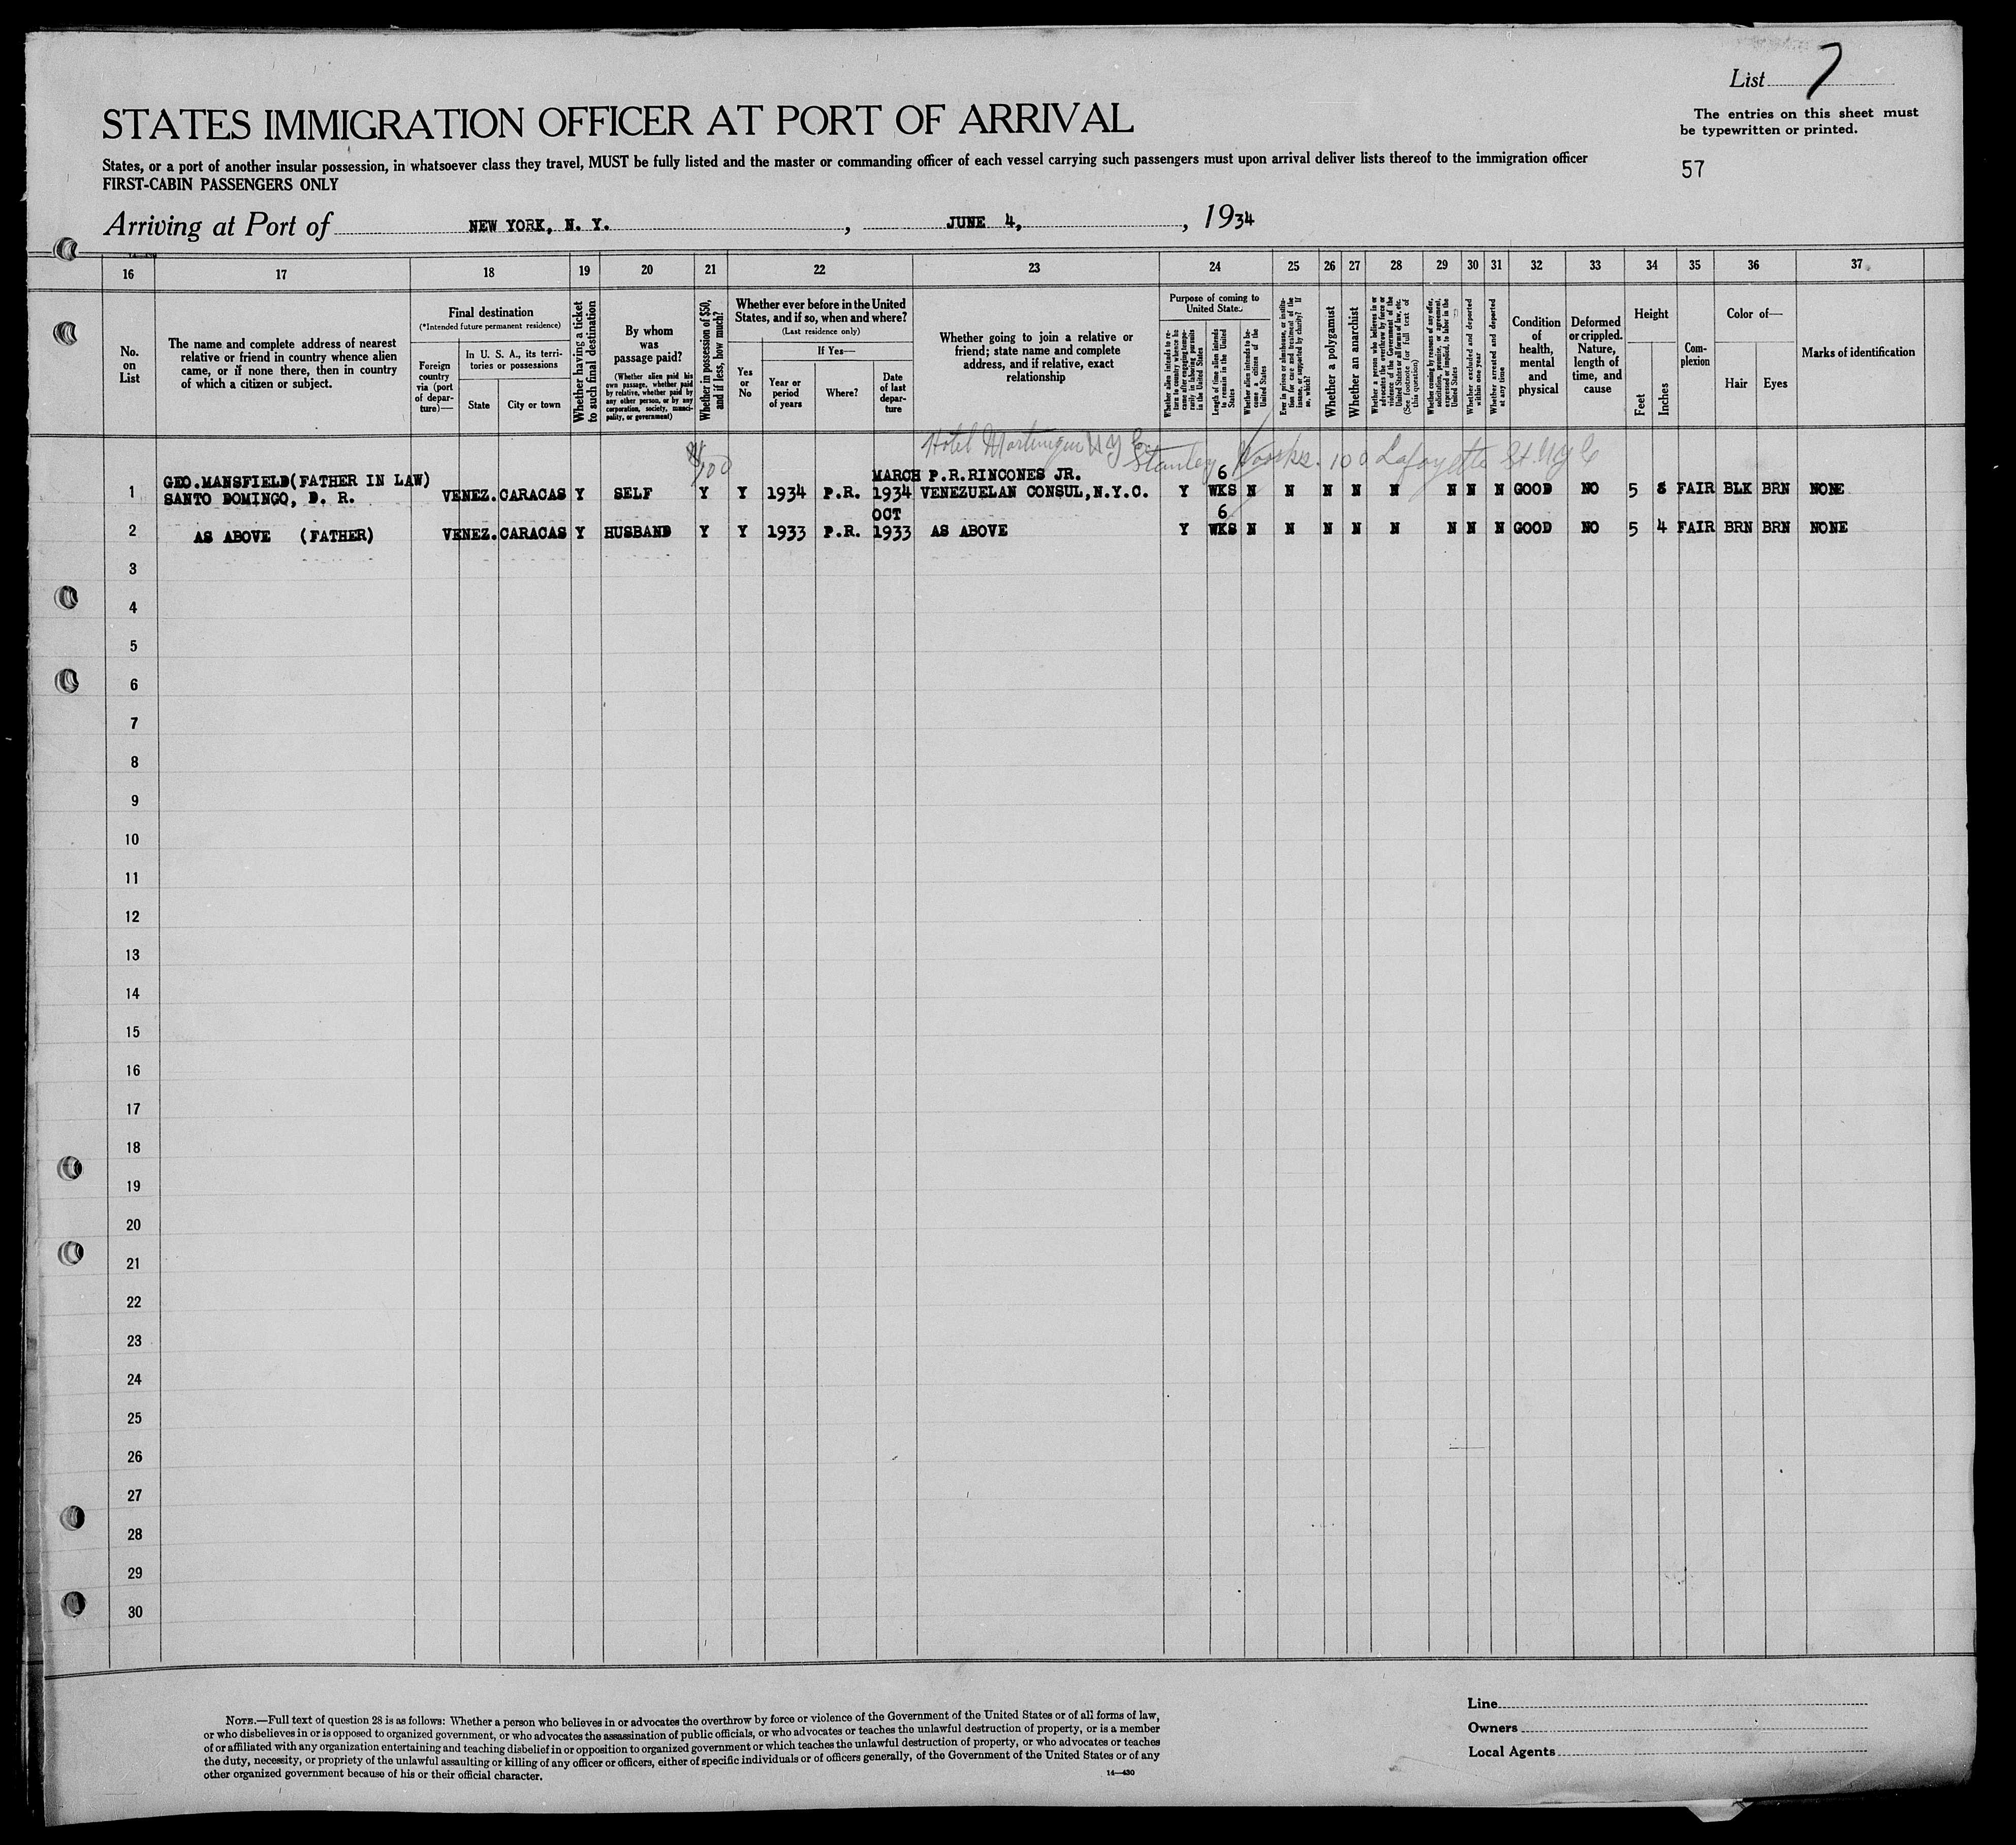 List 7
STATES IMMIGRATION OFFICER AT PORT OF ARRIVAL
The entries on this sheet must
be typewritten or printed.
States, or a port of another insular possession, in whatsoever class they travel, MUST be fully listed and the master or commanding officer of each vessel carrying such passengers must upon arrival deliver lists thereof to the immigration officer
FIRST-CABIN PASSENGERS ONLY
57
Arriving at Port of NEW YORK, N. Y. , JUNE 4, , 1934
16 17 18 19 20 21 22 23 24 25 26 27 28 29 30 31 32 33 34 35 36 37
No.
on
List
The name and complete address of nearest
relative or friend in country whence alien
came, or if none there, then in country
of which a citizen or subject.
Final destination
(*Intended future permanent residence)
Foreign
country
via (port
of depar-
ture)—
In U. S. A., its terri-
tories or possessions
State
City or town
Whether having a ticket
to such final destination
By whom
was
passage paid?
(Whether alien paid his
own passage, whether paid
by relative, whether paid by
any other person, or by any
corporation, society, munici-
pality, or government)
Whether in possession of $50,
and if less, how much?
Whether ever before in the United
States, and if so, when and where?
(Last residence only)
Yes
or
No
If Yes—
Year or
period
of years
Where?
Date
of last
depar-
ture
Whether going to join a relative or
friend; state name and complete
address, and if relative, exact
relationship
Purpose of coming to
United States
Whether alien intends to re-
turn to country whence he
came after engaging tempo-
rarily in laboring pursuits
in the United States
Length of time alien intends
to remain in the United
States
Whether alien intends to be-
come a citizen of the
United States
Ever in prison or almshouse, or institu-
tion for care and treatment of the
insane, or supported by charity? If
so, which?
Whether a polygamist
Whether an anarchist
Whether a person who believes in or
advocates the overthrow by force or
violence of the Government of the
United States or all forms of law, etc.
(See footnote for full text of
this question)
Whether coming by reasons of any offer,
solicitation, promise, or agreement,
expressed or implied, to labor in the
United States
Whether excluded and deported
within one year
Whether arrested and deported
at any time
Condition
of
health,
mental
and
physical
Deformed
or crippled.
Nature,
length of
time, and
cause
Height
Feet
Inches
Com-
plexion
Color of—
Hair
Eyes
Marks of identification
Hotel Martinique N Y C
Stanley 100 Lafayette St N Y C
100
GEO. MANSFIELD(FATHER IN LAW) MARCH P.R.RINCONES JR. 6
1 SANTO DOMINGO, D. R. VENEZ. CARACAS Y SELF Y Y 1934 P.R. 1934 VENEZUELAN CONSUL,N.Y.C. Y WKS N N N N N N N N GOOD NO 5 8 FAIR BLK BRN NONE
OCT 6
2 AS ABOVE (FATHER) VENEZ. CARACAS Y HUSBAND Y Y 1933 P.R. 1933 AS ABOVE Y WKS N N N N N N N N GOOD NO 5 4 FAIR BRN BRN NONE
3
4
5
6
7
8
9
10
11
12
13
14
15
16
17
18
19
20
21
22
23
24
25
26
27
28
29
30
NOTE.—Full text of question 28 is as follows: Whether a person who believes in or advocates the overthrow by force or violence of the Government of the United States or of all forms of law,
or who disbelieves in or is opposed to organized government, or who advocates the assassination of public officials, or who advocates or teaches the unlawful destruction of property, or is a member
of or affiliated with any organization entertaining and teaching disbelief in or opposition to organized government or which teaches the unlawful destruction of property, or who advocates or teaches
the duty, necessity, or propriety of the unlawful assaulting or killing of any officer or officers, either of specific individuals or of officers generally, of the Government of the United States or of any
other organized government because of his or their official character.
14—430
Line
Owners
Local Agents